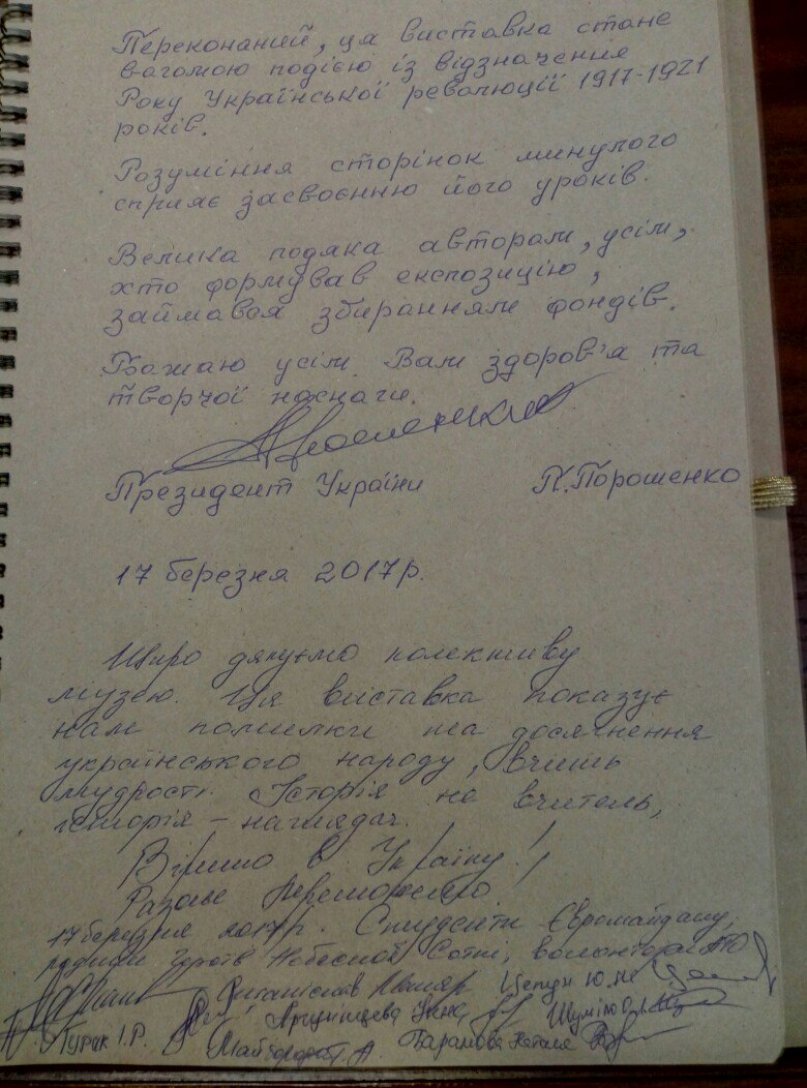 Переконаний, ця виставка стане
вагомою подією із відзначення
Року Української революції 1917-1921
років.
Розуміння сторінок минулого
сприяє засвоєнню його уроків.
Велика подяка авторам, усім,
хто формував експозицію,
займався збиранням фондів.
Бажаю усім Вам здоров'я та
творчої наснаги.
Президент України П. Порошенко
17 березня 2017 р.
Щиро дякуємо колективу
музею. Ця виставка показує
нам помилки та досягнення
українського народу, вчить
мудрості. Історія не вчитель,
історія – наглядач.
Віримо в Україну!
Разом переможемо!
17 березня 2017 р. Студенти Євромайдану,
родини Героїв Небесної Сотні, волонтери АТО
Цепун Ю.М.
Інна,
Гурик І.Р. Майборода Т.А. Наталя